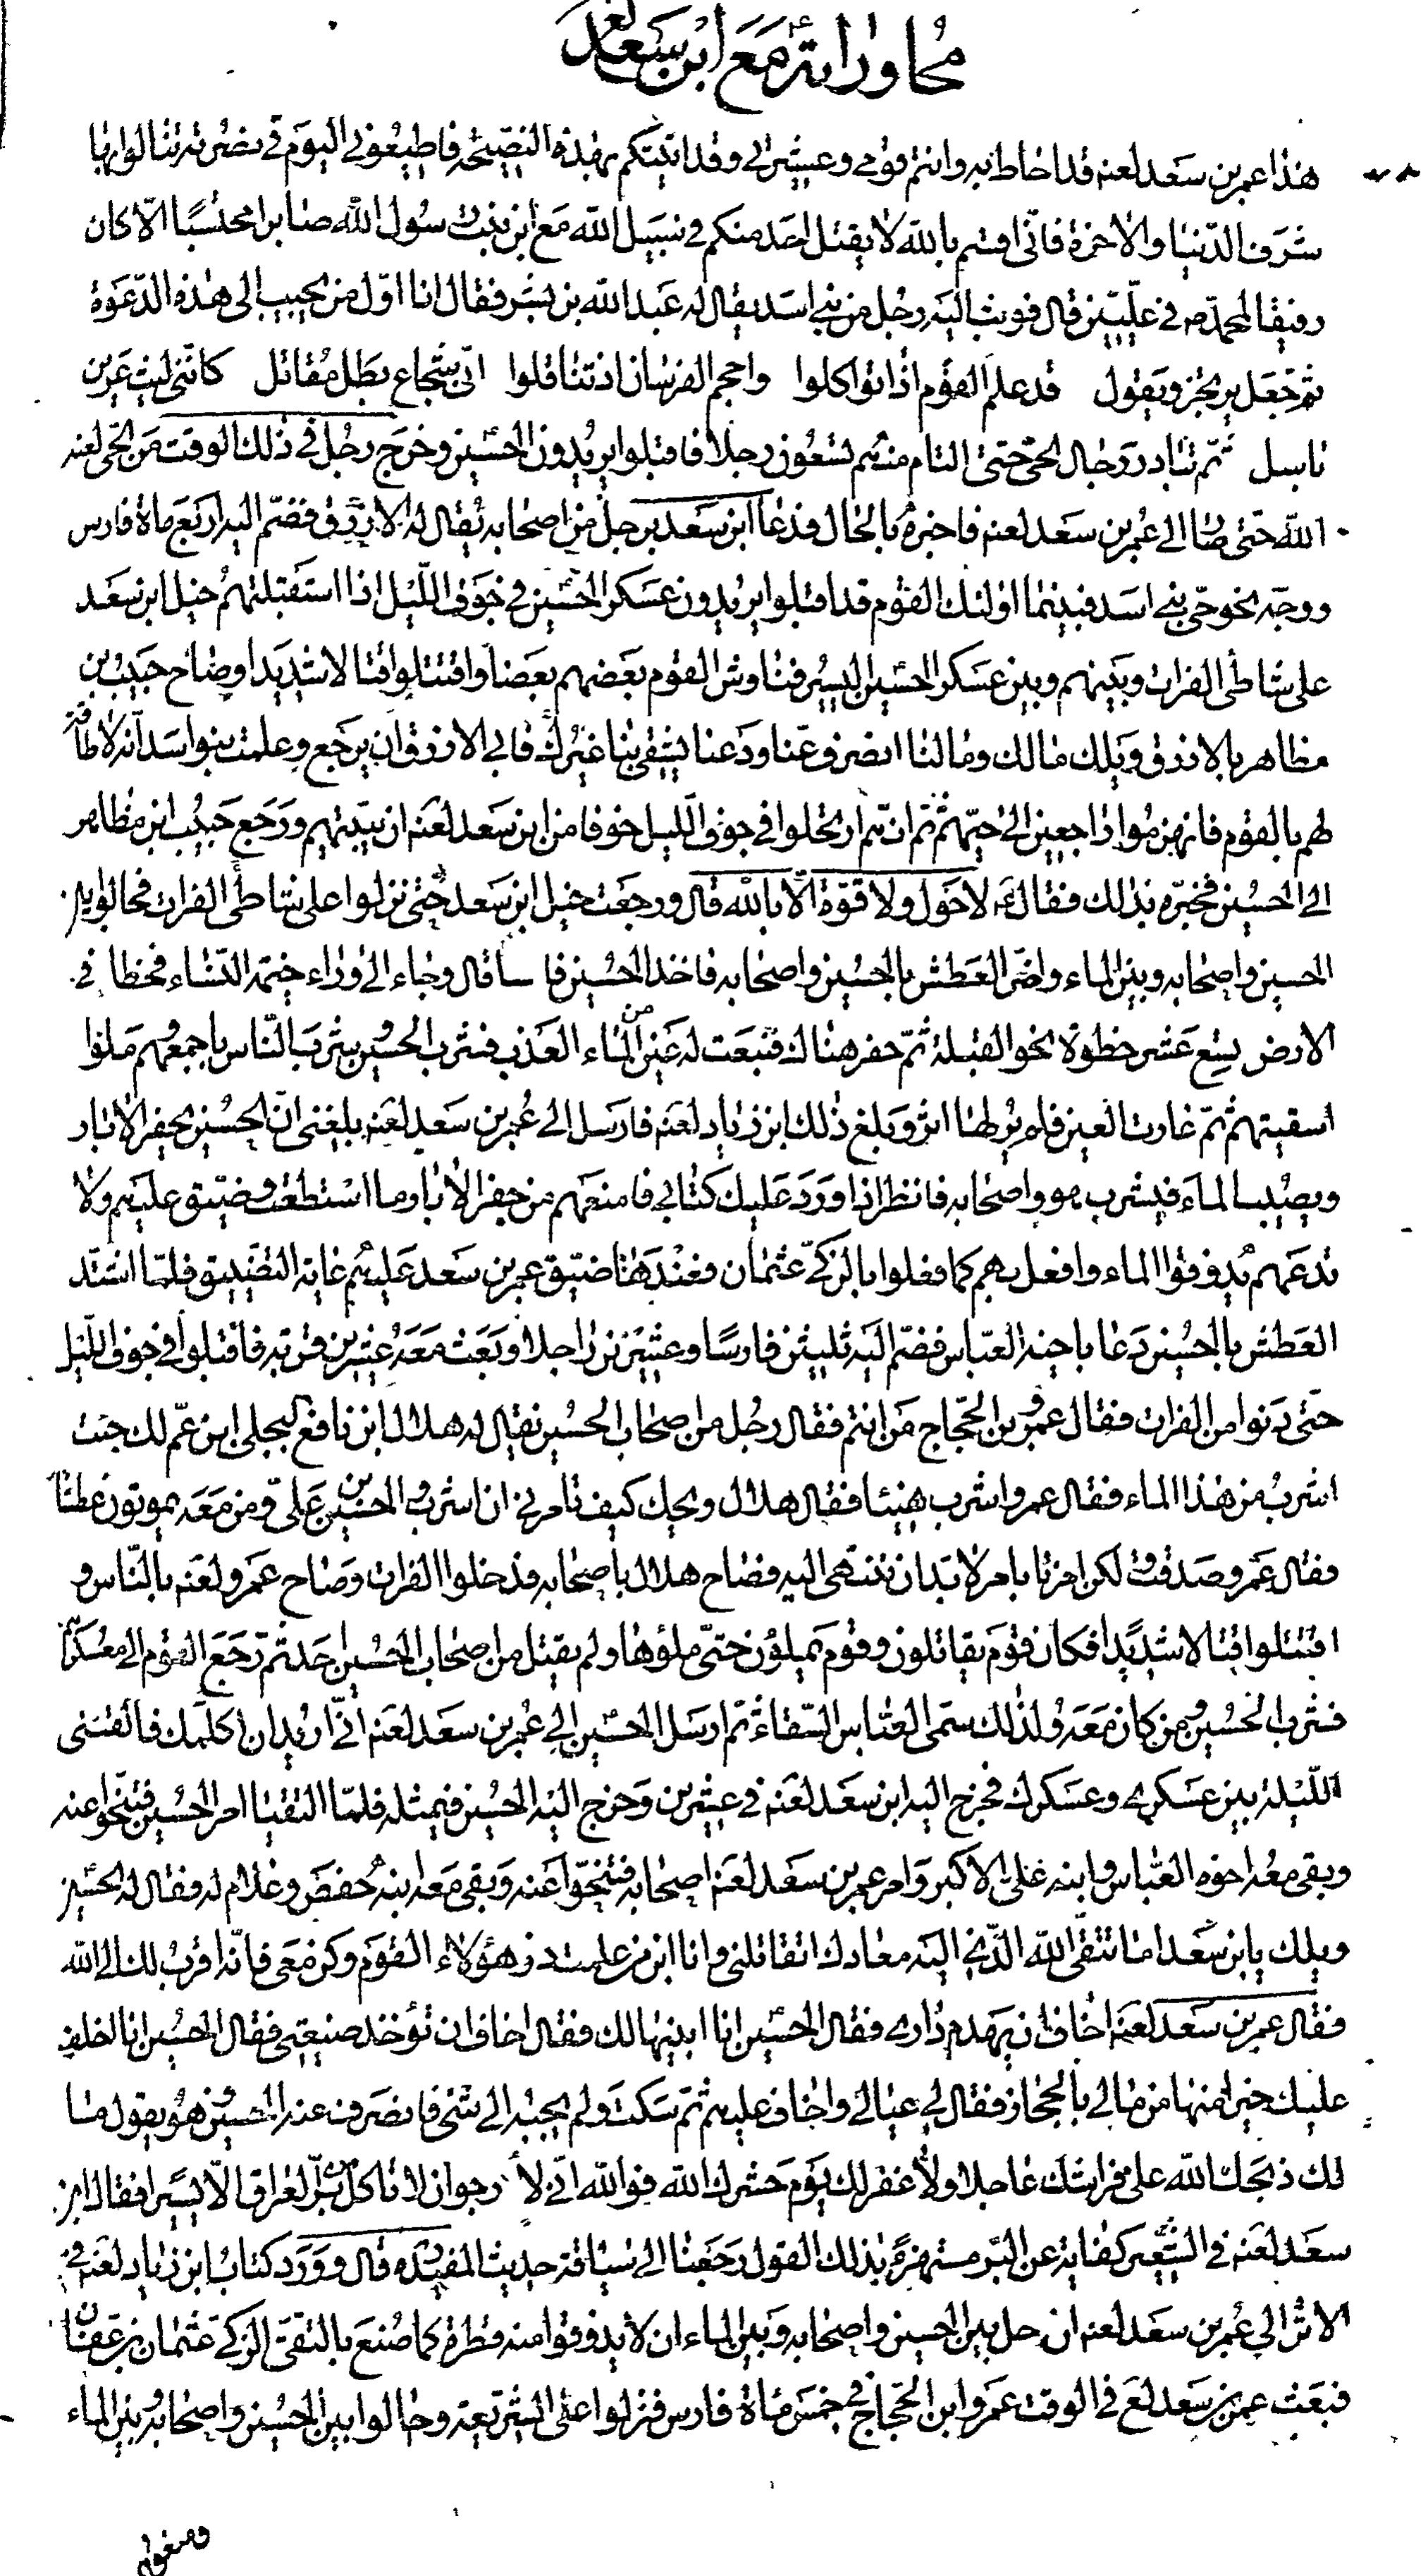 محاوراته مع ابن سعد لع
هذا عمر بن سعد لعنه قد احاط به وانتم قومي وعشيرتي وقد اتيتكم بهذه النصيحة فاطيعوني اليوم في نصرته تنالوا بها
شرف الدنيا والآخرة فانّي اقسم بالله لا يقتل احد منكم في سبيل الله مع ابن بنت رسول الله صابرا محتسبًا الّا كان
رفيقا لمحمد ص في علّيين قال فوثب اليه رجل من بني اسد يقال له عبد الله بن بشر فقال انا اوّل من يجيب الى هذه الدّعوة
ثم جعل يرتجز ويقول قد علم القوم اذا تواكلوا واحجم الفرسان اذ تناقلوا انّي شجاع بطل مقاتل كأنّني ليث عرين
باسل ثمّ تبادر رجال الحيّ حتى التام منهم تسعون رجلا فاقبلوا يريدون الحسين وخرج رجل في ذلك الوقت من الحيّ لعنه
الله حتّى صار الى عمر بن سعد لعنه فاخبره بالحال فدعا ابن سعد برجل من اصحابه يقال له الازرق فضمّ اليه اربع مأة فارس
ووجّه نحو حيّ بني اسد فبينما اولئك القوم قد اقبلوا يريدون عسكر الحسين في جوف اللّيل اذا استقبلتهم خيل ابن سعد
على شاطئ الفرات وبينهم وبين عسكر الحسين اليسير فناوش القوم بعضهم بعضا واقتتلوا قتالا شديدا وصاح حبيب بن
مظاهر بالازرق ويلك مالك ومالنا انصرف عنّا ودعنا يشقى بنا غيرك فابى الازرق ان يرجع وعلمت بنو اسد انّه لا طاقة
لهم بالقوم فانهزموا راجعين الى حيّهم ثمّ انّهم ارتحلوا في جوف اللّيل خوفا من ابن سعد لعنه ان يبيّتهم ورجع حبيب ابن مظاهر
الى الحسين فخبّره بذلك فقال ع لا حول ولا قوّة الّا بالله قال ورجعت خيل ابن سعد حتّى نزلوا على شاطئ الفرات فحالوا بين
الحسين واصحابه وبين الماء واضرّ العطش بالحسين واصحابه فاخذ الحسين فاسا قال وجاء الى وراء خيمة النّساء فخطا في
الارض تسع عشر خطوة نحو القبلة ثمّ حفر هناك فنبعت له عين من الماء العذب فشرب الحسين وشرب النّاس باجمعهم وملؤا
اسقيتهم ثمّ غارت العين فلم ير لها اثر وبلغ ذلك ابن زياد لعنه فارسل الى عمر بن سعد لعنه بلغني انّ الحسين يحفر الابار
ويصيب الماء فيشرب هو واصحابه فانظر اذا ورد عليك كتابي فامنعهم من حفر الابار ما استطعت وضيّق عليهم ولا
تدعهم يذوقوا الماء وافعل بهم كما فعلوا بالزكيّ عثمان فعندها ضيّق عمر بن سعد عليهم غاية التضييق فلمّا اشتدّ
العطش بالحسين دعا باخيه العبّاس فضمّ اليه ثلثين فارسًا وعشرين راجلا وبعث معه عشرين قربة فاقبلوا في جوف اللّيل
حتّى دنوا من الفرات فقال عمرو بن الحجّاج من انتم فقال رجل من اصحاب الحسين يقال له هلال ابن نافع البجلي ابن عمّ لك جئت
اشرب من هذا الماء فقال عمرو اشرب هنيئا فقال هلال ويحك كيف تامرني ان اشرب والحسين بن عليّ ومن معه يموتون عطشا
فقال عمرو صدقت ولكن امرنا بامر لابدّ ان ننتهي اليه فصاح هلال باصحابه فدخلوا الفرات وصاح عمرو لعنه بالنّاس و
اقتتلوا قتالا شديدًا فكان قوم يقاتلون وقوم يملؤن حتّى ملؤها ولم يقتل من اصحاب الحسين احد ثمّ رجع القوم الى معسكرهم
فشرب الحسين ومن كان معه ولذلك سمّى العبّاس السّقاء ثم ارسل الحسين الى عمر بن سعد لعنه انّي اريد ان اكلّمك فالقني
اللّيلة بين عسكري وعسكرك فخرج اليه ابن سعد لعنه في عشرين وخرج اليه الحسين في مثله فلمّا التقيا امر الحسين فتنحّوا عنه
وبقي معه اخوه العبّاس وابنه علي الاكبر وامر عمر بن سعد لعنه اصحابه فتنحّوا عنه وبقي معه ابنه حفص وغلام له فقال له الحسين
ويلك يابن سعد اما تتّقي الله الّذي اليه معادك اتقاتلني وانا ابن من علمت ذر هؤلاء القوم وكن معي فانّه اقرب لك الى الله
فقال عمر بن سعد لعنه اخاف ان يهدم داري فقال الحسين انا ابنيها لك فقال اخاف ان تؤخذ ضيعتي فقال الحسين انا اخلف
عليك خيرا منها من مالي بالحجاز فقال لي عيالي واخاف عليهم ثمّ سكت ولم يجبه الى شيء فانصرف عنه الحسين وهو يقول ما
لك ذبحك الله على فراشك عاجلا ولا غفر لك يوم حشرك الله فوالله انّي لأرجو ان لا تاكل من برّ العراق الّا يسيرا فقال ابن
سعد لعنه في الشّعير كفاية عن البرّ مستهزئًا بذلك القول رجعنا الى سياقة حديث المفيد ره قال وورد كتاب ابن زياد لعنه في
الاثر الى عمر بن سعد لعنه ان حل بين الحسين واصحابه وبين الماء ان لا يذوقوا منه قطرة كما صنع بالتقيّ الزكيّ عثمان بن عفّان
فبعث عمر بن سعد لع في الوقت عمرو ابن الحجّاج في خمس مأة فارس فنزلوا على الشّريعة وحالوا بين الحسين واصحابه وبين الماء
ومنعوهم